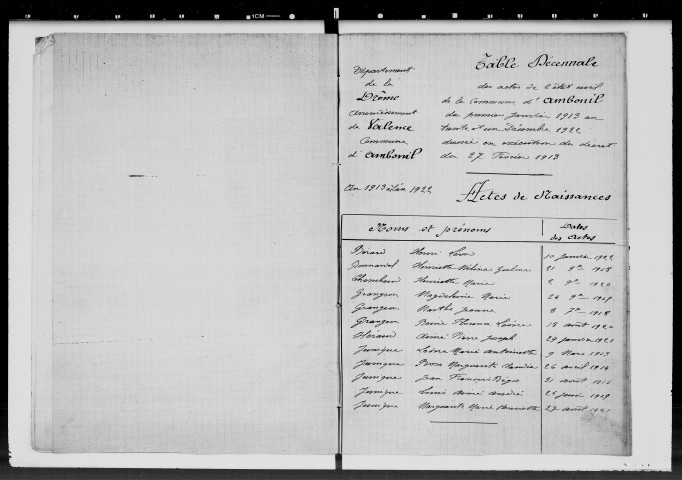 Département
de la
Drôme
Arrondissement
de Valence
Commune
d'Ambonil
An 1913 à l'an 1922
Table Décennale
des actes de l'état civil
de la Commune d'Ambonil
du premier janvier 1913 au
trente et un Décembre 1922
dressée en exécution du décret
du 27 Février 1913
Actes de Naissances
Noms et prénoms Dates des Actes
Bérard Henri Léon 10 janvier 1922
Henriette 21 9re 1918
Henriette Marie 2 9re 1920
Grangeon Magdeleine Marie 24 9re 1919
Grangeon Marthe Jeanne 8 7re 1918
Grangeon 18 août 1920
Aimé Pierre Joseph 29 janvier 1921
Junique Léona Marie Antoinette 9 Mars 1913
Junique Rosa Marguerite 26 avril 1914
Junique Jean François Régis 31 août 1916
Junique Louis Aimé André juin 1919
Junique Marguerite Marie Henriette 27 août 1921